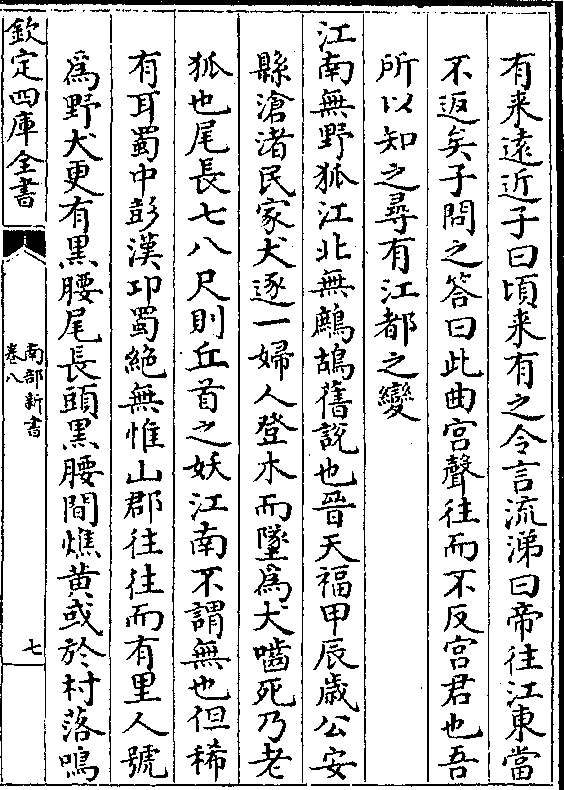 有来遠近子曰頃来有之令言流涕曰帝往江東當
不返矣子問之答曰此曲宫聲往而不反宫君也吾
所以知之尋有江都之變
江南無野狐江北無鷓鴣舊說也晉天福甲辰歲公安
縣滄渚民家犬逐一婦人登木而墜為犬嚙死乃老
狐也尾長七八尺則丘首之妖江南不謂無也但稀
有耳蜀中彭漢卭蜀絶無惟山郡往往而有里人號
為野犬更有黒腰尾長頭黒腰間燋黄或於村落鳴
欽定四庫全書
南部新書
卷八
七